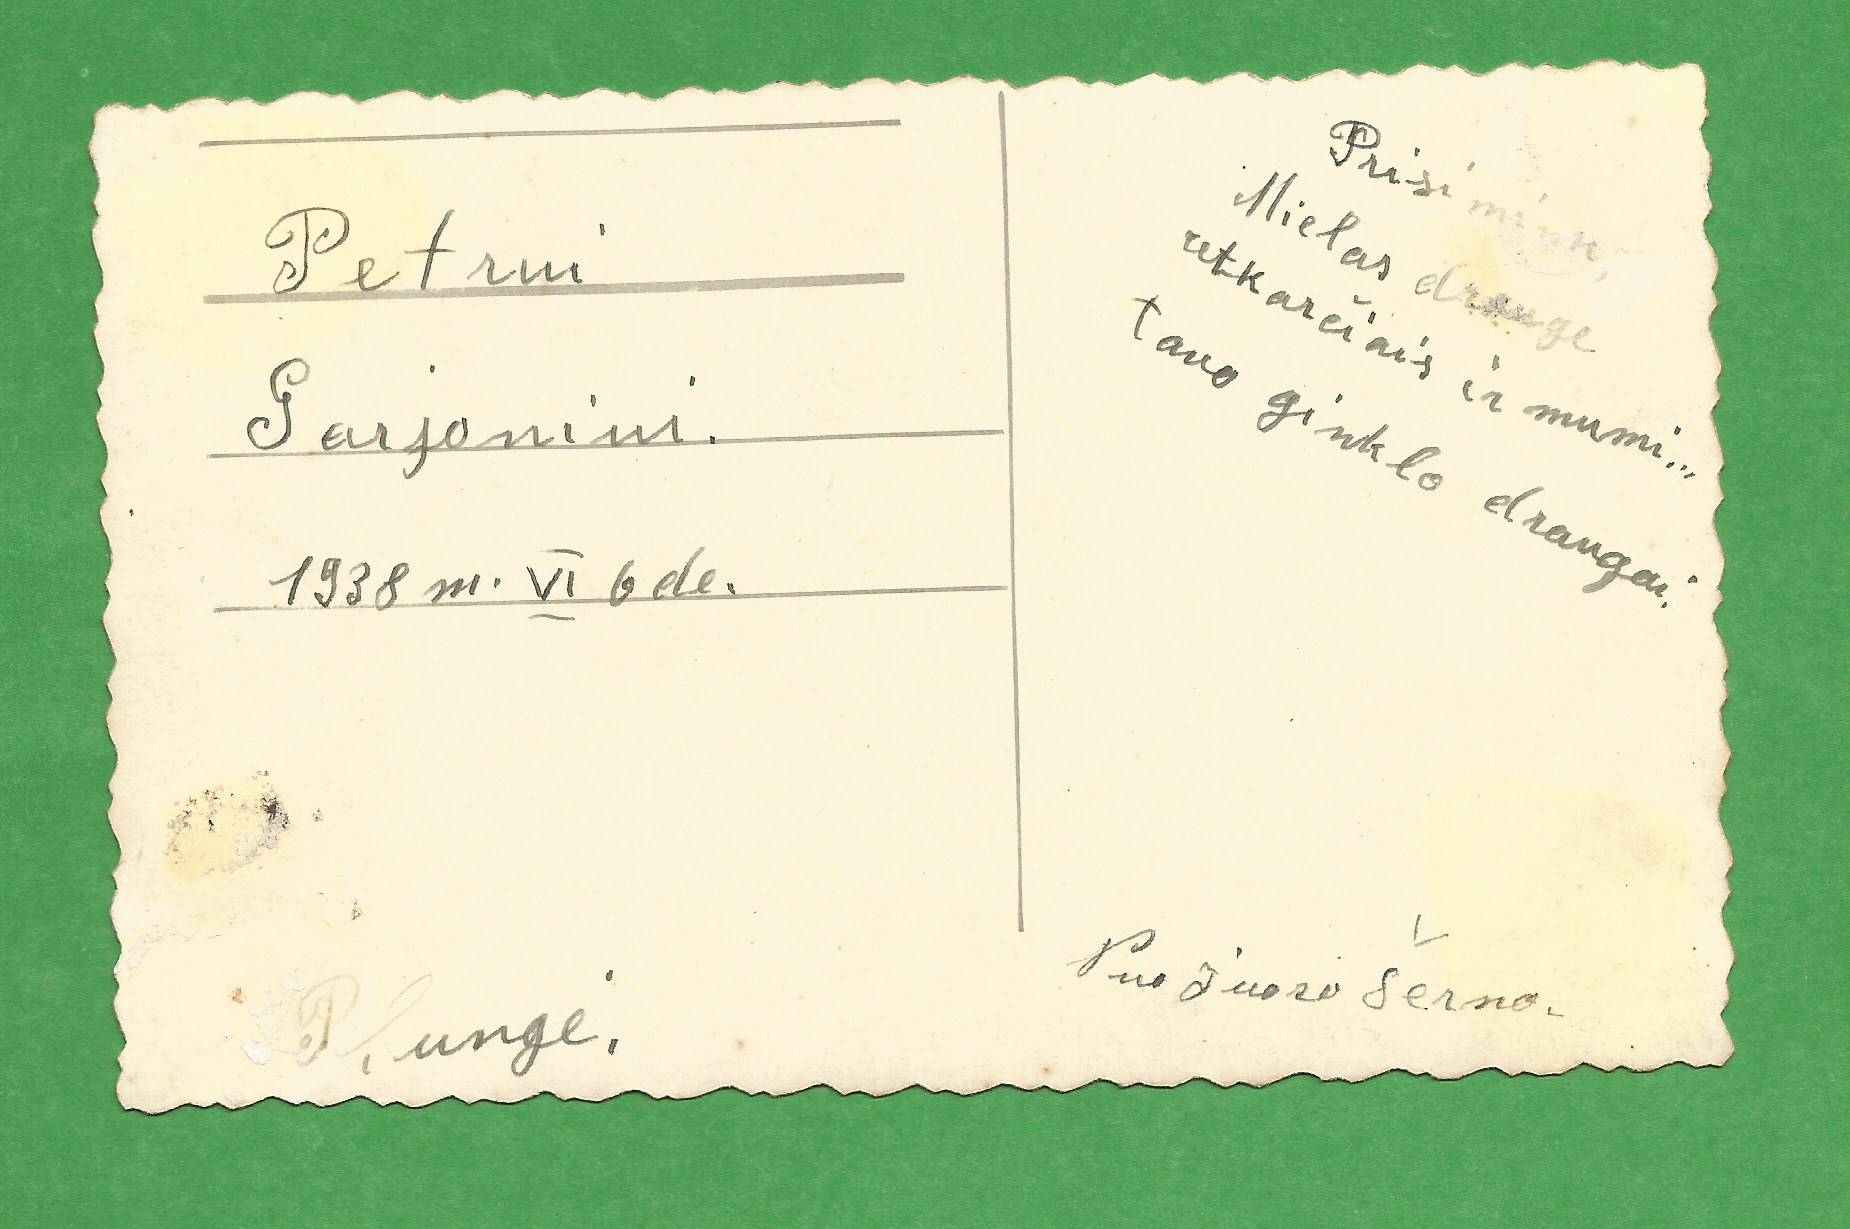 Petrui
Garjoniui.
1938 m. VI 6 de.
Plungė.
Prisimink,
Mielas drauge
retkarčiais ir mumi...
tavo ginklo draugai.
Nuo Juozo Šerno.